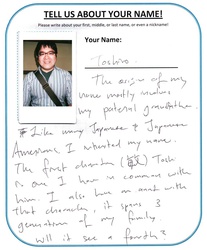 TELL US ABOUT YOUR NAME!
Please write about your first, middle, or last name, or even a nickname!
Your Name:
Toshiro
The origin of my
name mostly includes
my paternal grandfather
Like many Japanese & Japanese
Americans, I inherited my name.
The first character (敏) Toshi
is one I have in common with
him. I also have an aunt with
that character, it spans 3
generations of my family.
Will it see a fourth?